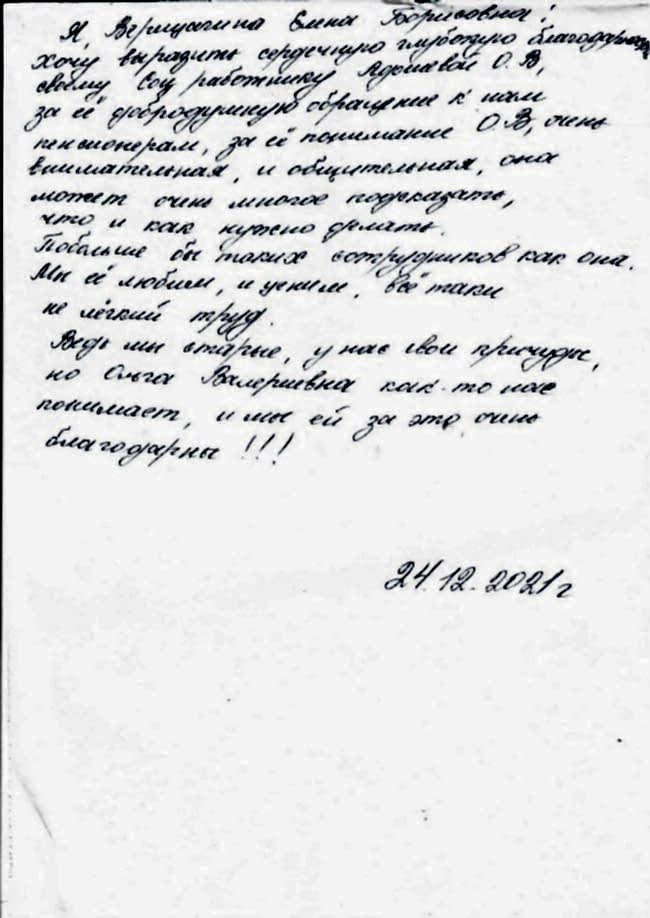 Я Верещагина Елена Борисовна!
хочу выразить сердечную глубокую благодарность
своему Соц работнику О.В,
за её добродушную обращение к нам
пенсионерам, за её понимание О.В, очень
внимательная, и общительная, она
может очень многое подсказать,
что и как нужно делать.
Побольше бы таких сотрудников как она.
Мы её любим, и ценим, всё таки
не лёгкий труд.
Ведь мы старые, у нас свои причуды,
но Ольга Валериевна как-то нас
понимает, и мы ей за это очень
благодарны!!!
24.12.2021г